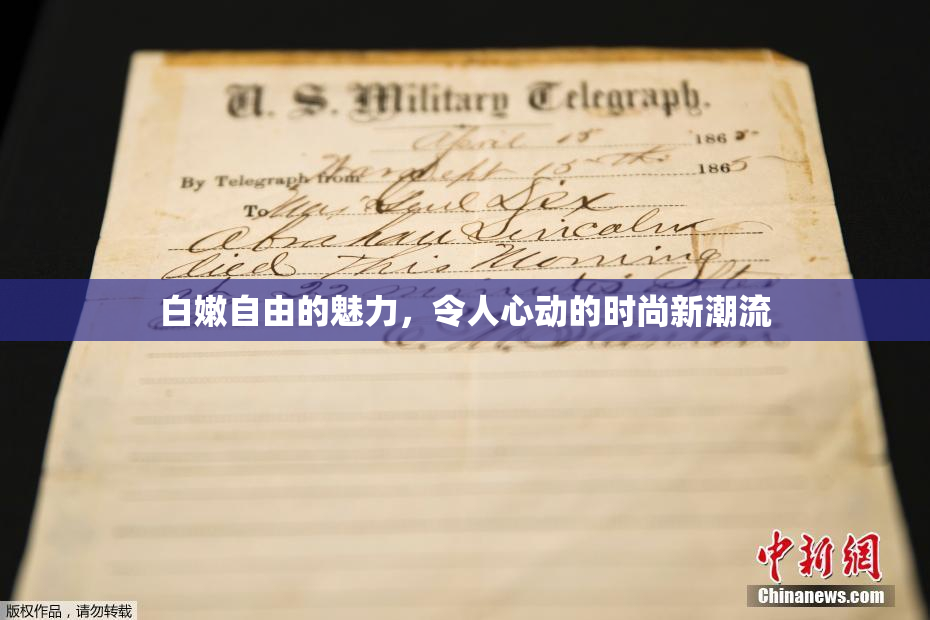 U. S. Military Telegraph.
April 15 1865
By Telegraph from War Dept 15th 1865
To Maj Genl Dix
Abraham Lincoln
died This Morning
at 22 minutes after
白嫩自由的魅力，令人心动的时尚新潮流
E. M. Stanton
中新網
Chinanews.com
版权作品，请勿转载